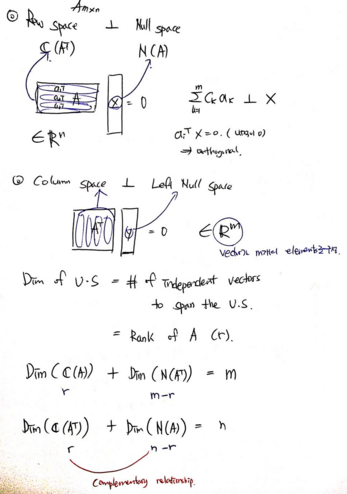 A m×n
① Row space ⊥ Null space
ℂ(Aᵀ) N(A)
a₁ᵀ
a₂ᵀ A
a₃ᵀ
x = 0
m
Σ Cₖ aₖ ⊥ x
k=1
aᵢᵀ x = 0.
⇒ orthogonal.
∈ ℝⁿ
② Column space ⊥ Left Null space
Aᵀ y = 0 ∈ ℝᵐ
Dim of U.S = # of independent vectors
to span the U.S.
= Rank of A (r).
Dim(ℂ(A)) + Dim(N(Aᵀ)) = m
r m-r
Dim(ℂ(Aᵀ)) + Dim(N(A)) = n
r n-r
Complementary relationship.